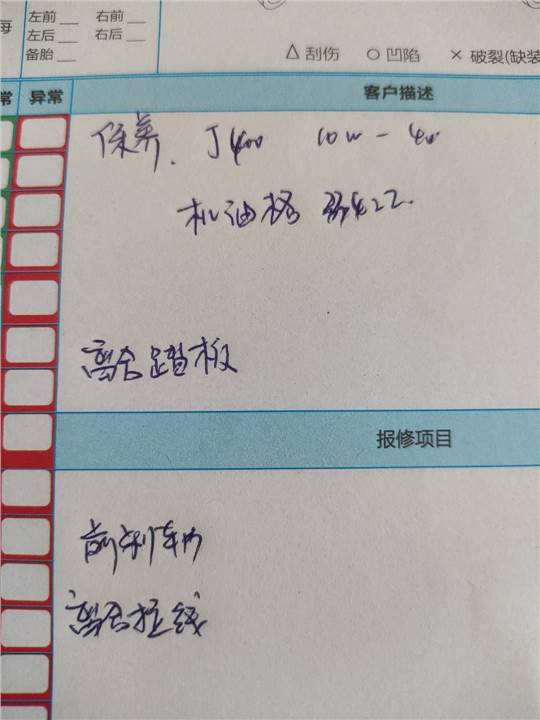 每 左前__ 右前__
左后__ 右后__
备胎__
△ 刮伤 ○ 凹陷 × 破裂(缺装
常 异常 客户描述
保养. J400 10w-40
机油格
离合踏板
报修项目
前刹车片
离合拉线